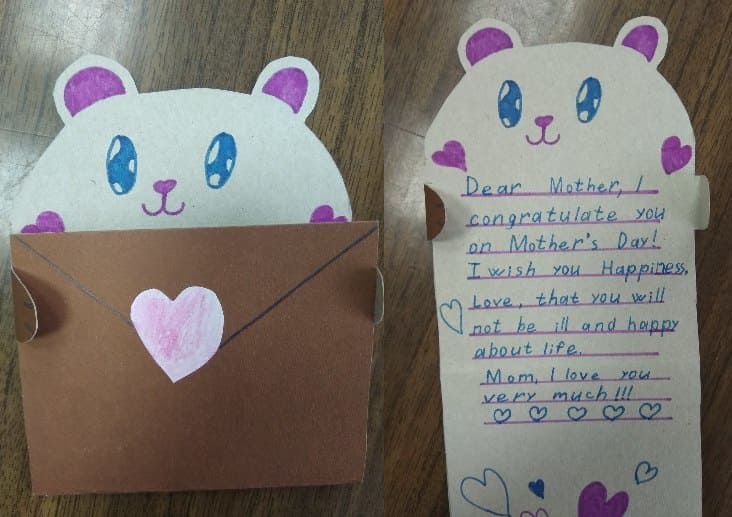 Dear Mother, I
congratulate you
on Mother's Day!
I wish you Happiness,
Love, that you will
not be ill and happy
about life.
Mom, I love you
very much!!!